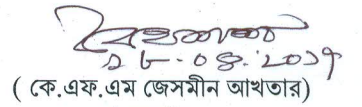 ২৮.০৪.২০১৭
( কে.এফ.এম জেসমীন আখতার)